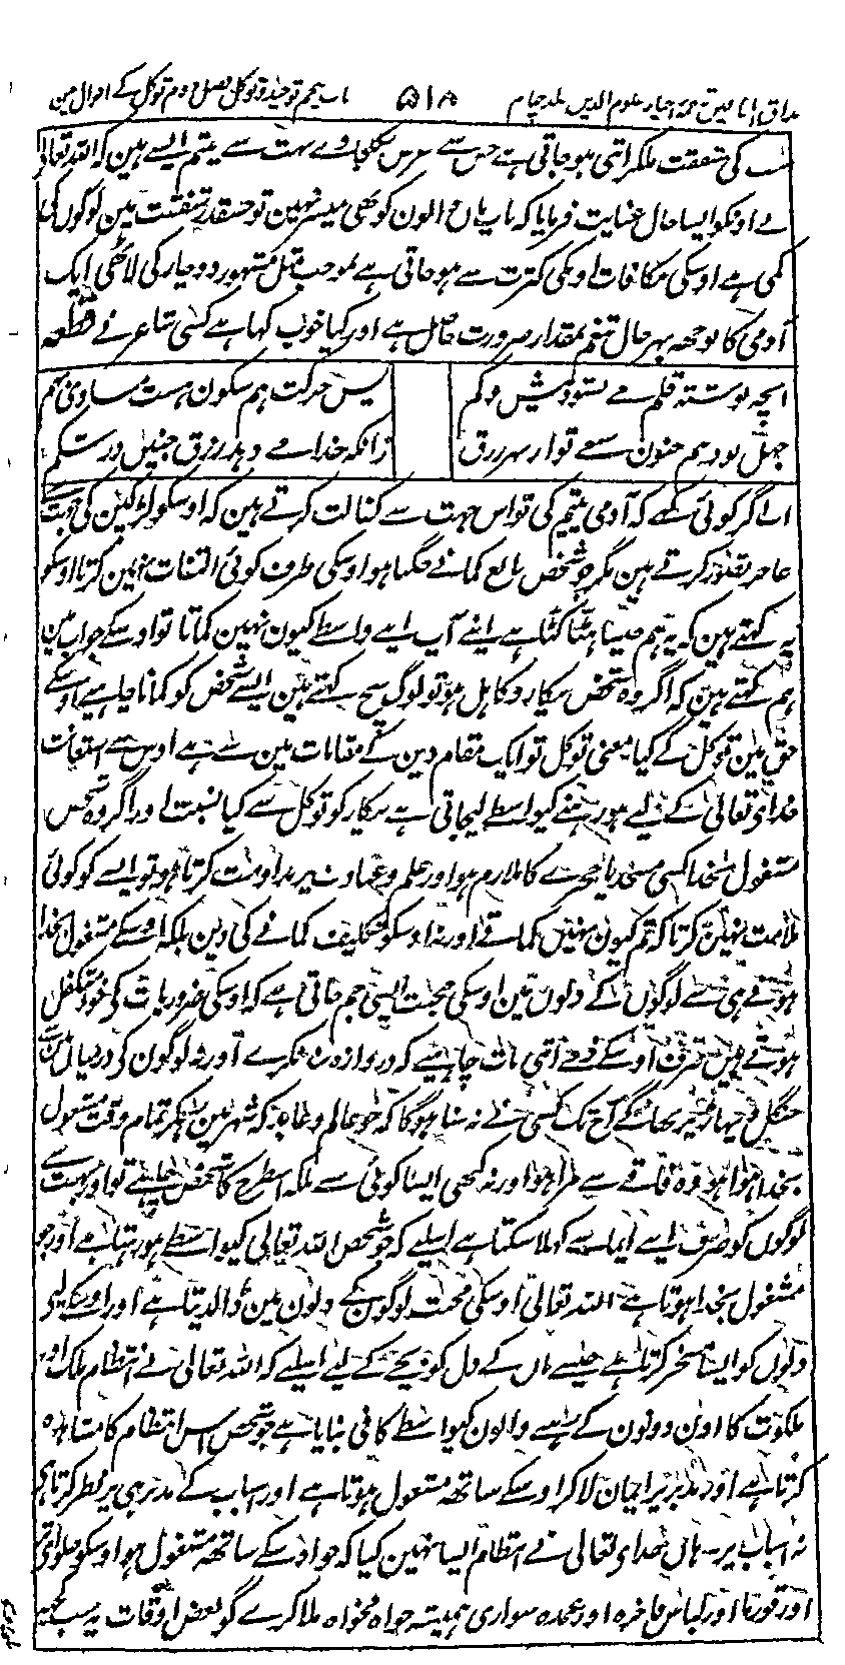 مذاق العارفین ترجمہ احیاء علوم الدین جلد چہارم ۵۱۸ باب پنجم توحید و توکل فصل دوم توکل کے احوال مین
سب کی شفقت ملکر اتنی ہو جاتی ہے جس سے غرض نکلجاوے بہت سے یتیم ایسے ہین کہ اللہ تعالی
نے اونکو ایسا حال عنایت فرمایا کہ ماں باپ والون کو بھی میسر نہین تو جسقدر شفقت مین لوگوں کی
کمی ہے اوسکی مکافات اونکی کثرت سے ہو جاتی ہے بموجب مثل مشہور دو چار کی لاٹھی ایک
آدمی کا بوجھ بہر حال تنعم بمقدار ضرورت حاصل ہے اور کیا خوب کہا ہے کسی شاعر نے قطعہ
انچہ نوشتہ قلم مے نشود بیش و کم پس حرکت ہم سکون ہست مساوی بہم
جہل بود ہم جنون سعی تو از بہر رزق زانکہ خدا مے دہد رزق جنین در شکم
اب اگر کوئی کہے کہ آدمی یتیم کی تو اس جہت سے کفالت کرتے ہین کہ اوسکو لڑکپن کی جہت سے
عاجز تصور کرتے ہین مگر جو شخص بالغ کمانے جوگا ہو اوسکی طرف کوئی التفات نہین کرتا اوسکو
یہ کہتے ہین کہ یہ ہم جیسا ہٹا کٹا ہے اپنے آپ اپنے واسطے کیون نہین کماتا تو اوسکے جواب مین
ہم کہتے ہین کہ اگر وہ شخص بیکار و کاہل ہو تو لوگ سچ کہتے ہین ایسے شخص کو کمانا چاہیے اوسکے
حق مین توکل کے کیا معنی توکل تو ایک مقام دین کے مقامات مین سے ہے اوس سے استعانت
خدای تعالی کے لیے ہو رہنے کیواسطے لیجاتی ہے بیکار کو توکل سے کیا نسبت اور اگر وہ شخص
مشغول بخدا کسی مسجد یا حجرے کا ملازم ہو اور علم و عبادت پر مداومت کرتا ہو تو ایسے کو کوئی
ملامت نہین کرتا کہ تم کیون نہین کماتے اور نہ اوسکو تکلیف کمانے کی دین بلکہ اوسکے مشغول بخدا
ہوتے ہی سے لوگوں کے دلوں مین اوسکی محبت ایسی جم جاتی ہے کہ اوسکی ضروریات کے خود متکفل
ہوتے ہین صرف اوسکے ذمے اتنی بات چاہیے کہ دروازہ بند نکرے اور نہ لوگون کے درمیان سے
جنگل و پہاڑ میں بھاگے آج تک کسی نے نہ سنا ہوگا کہ جو عالم و عابد کہ شہر مین رہکر تمام وقت مشغول
بخدا ہوا ہو وہ فاقے سے مرا ہو اور نہ کبھی ایسا کوئی سنے بلکہ اسطرح کا شخص چاہے تو اور بہت سے
لوگوں کو صرف اپنے ایما سے کھلا سکتا ہے اسلیے کہ جو شخص اللہ تعالی کیواسطے ہو رہتا ہے اور جو
مشغول بخدا ہوتا ہے اللہ تعالی اوسکی محبت لوگون کے دلون مین ڈالدیتا ہے اور اوسکے لیے
دلوں کو ایسا مسخر کرتا ہے جیسے ماں کے دل کو بچے کے لیے اسلیے کہ اللہ تعالی نے انتظام ملک اور
ملکوت کا اون دونون کے بسنے والون کیواسطے کافی بنایا ہے جو شخص اس انتظام کا مشاہدہ
کرتا ہے اور مدبر پر ایمان لاکر اوسکے ساتھ مشغول ہوتا ہے اور اسباب کے مدبر ہی پر نظر کرتا ہے
نہ اسباب پر ہاں خدای تعالی نے انتظام ایسا نہین کیا کہ جو اوسکے ساتھ مشغول ہو اوسکو حلوای تر
اور قورما اور لباس فاخرہ اور عمدہ سواری ہمیشہ خواہ مخواہ ملا کرے گو بعض اوقات یہ سب کچھ